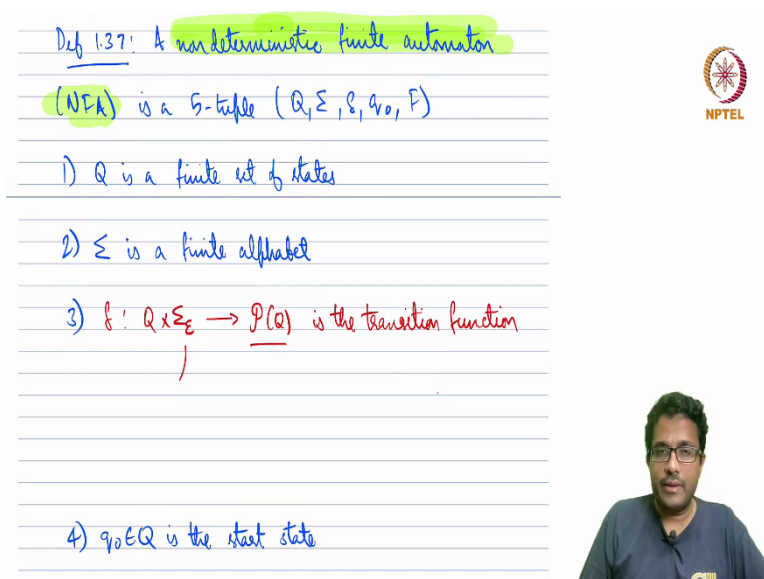 Def 1.37: A non deterministic finite automaton
(NFA) is a 5-tuple (Q, Σ, δ, q₀, F)
1) Q is a finite set of states
2) Σ is a finite alphabet
3) δ: Q × Σ_ε → P(Q) is the transition function
4) q₀ ∈ Q is the start state
NPTEL